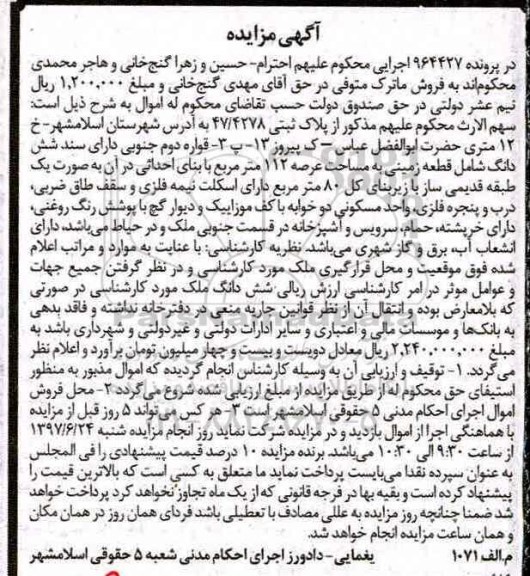 آگهی مزایده
در پرونده ۹۶۴۴۲۷ اجرایی محکوم علیهم احترام- حسین و زهرا گنج‌خانی و هاجر محمدی
محکوم‌اند به فروش ماترک متوفی در حق آقای مهدی گنج‌خانی و مبلغ ۱,۲۰۰,۰۰۰ ریال
نیم عشر دولتی در حق صندوق دولت حسب تقاضای محکوم له اموال به شرح ذیل است:
سهم الارث محکوم علیهم مذکور از پلاک ثبتی ۴۷/۴۲۷۸ به آدرس شهرستان اسلامشهر- خ
۱۲ متری حضرت ابوالفضل عباس – ک پیروز ۱۳- پ ۳- قواره دوم جنوبی دارای سند شش
دانگ شامل قطعه زمینی به مساحت عرصه ۱۱۲ متر مربع با بنای احداثی در آن به صورت یک
طبقه قدیمی ساز با زیربنای کل ۸۰ متر مربع دارای اسکلت نیمه فلزی و سقف طاق ضربی،
درب و پنجره فلزی، واحد مسکونی دو خوابه با کف موزاییک و دیوار گچ با پوشش رنگ روغنی،
دارای خرپشته، حمام، سرویس و آشپزخانه در قسمت جنوبی ملک و در حیاط می‌باشد، دارای
انشعاب آب، برق و گاز شهری می‌باشد. نظریه کارشناسی: با عنایت به موارد و مراتب اعلام
شده فوق موقعیت و محل قرارگیری ملک مورد کارشناسی و در نظر گرفتن جمیع جهات
و عوامل موثر در امر کارشناسی ارزش ریالی شش دانگ ملک مورد کارشناسی در صورتی
که بلامعارض بوده و انتقال آن از نظر قوانین جاریه منعی در دفترخانه نداشته و فاقد بدهی
به بانک‌ها و موسسات مالی و اعتباری و سایر ادارات دولتی و غیردولتی و شهرداری باشد به
مبلغ ۲,۲۴۰,۰۰۰,۰۰۰ ریال معادل دویست و بیست و چهار میلیون تومان برآورد و اعلام نظر
می‌گردد. ۱- توقیف و ارزیابی آن به وسیله کارشناس انجام گردیده که اموال مذبور به منظور
استیفای حق محکوم له از طریق مزایده از مبلغ ارزیابی شده شروع می‌گردد ۲- محل فروش
اموال اجرای احکام مدنی ۵ حقوقی اسلامشهر است ۳- هر کس می‌تواند ۵ روز قبل از مزایده
با هماهنگی اجرا از اموال بازدید و در مزایده شرکت نماید روز انجام مزایده شنبه ۱۳۹۷/۶/۲۴
از ساعت ۹:۳۰ الی ۱۰:۳۰ می‌باشد. برنده مزایده ۱۰ درصد قیمت پیشنهادی را فی المجلس
به عنوان سپرده نقدا می‌بایست پرداخت نماید ما متعلق به کسی است که بالاترین قیمت را
پیشنهاد کرده است و بقیه بها در فرجه قانونی که از یک ماه تجاوز نخواهد کرد پرداخت خواهد
شد ضمنا چنانچه روز مزایده به عللی مصادف با تعطیلی باشد فردای همان روز در همان مکان
و همان ساعت مزایده انجام خواهد شد.
م.الف ۱۰۷۱ یغمایی- دادورز اجرای احکام مدنی شعبه ۵ حقوقی اسلامشهر